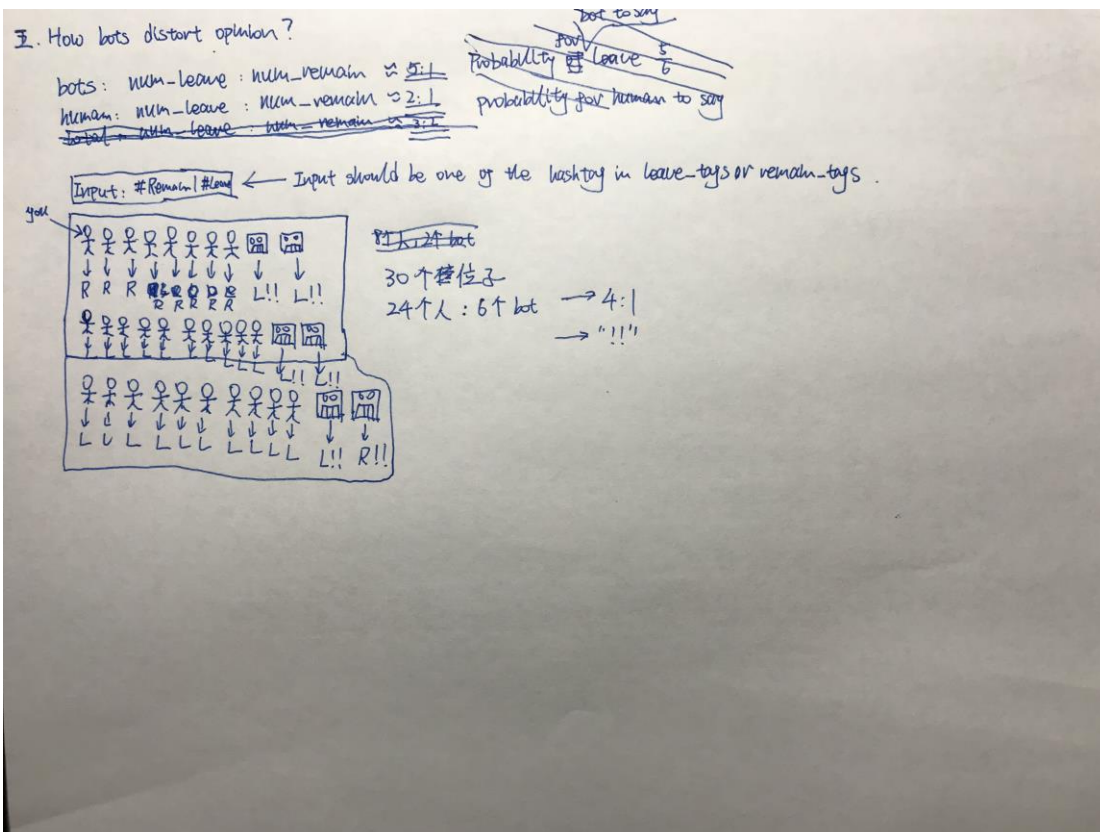 II. How bots distort opinion?
bots: num_leave : num_remain ≈ 5:1
human: num_leave : num_remain ≈ 2:1
total: num_leave : num_remain ≈ 3:1
bot to say
for
Probability leave 5/6
probability for human to say
Input: #Remain | #Leave ← Input should be one of the hashtag in leave_tags or remain_tags.
you
R R R R R R R R L!! L!!
8个人:2个bot
30个位子
24个人:6个bot → 4:1
→ "!!"
L L L L L L L L L L!! L!!
L L L L L L L L L L!! R!!